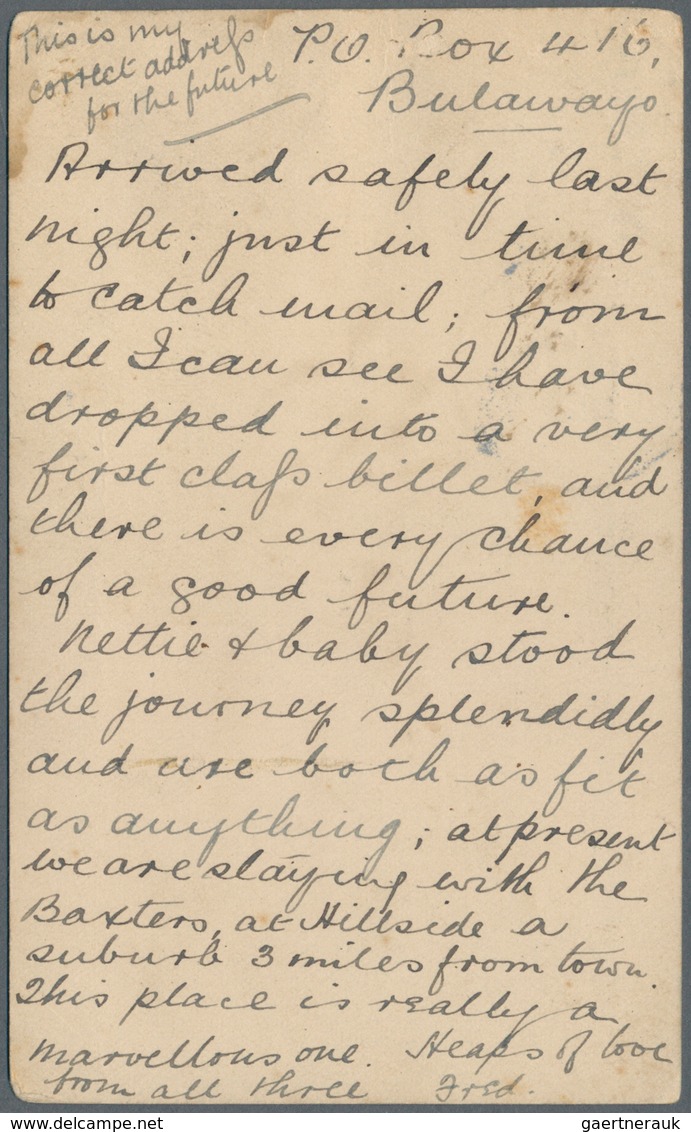 This is my
correct addreſs
for the future
P.O. Box 416,
Bulawayo
Arrived safely last
night; just in time
to catch mail; from
all I can see I have
dropped into a very
first claſs billet, and
there is every chance
of a good future.
Nettie & baby stood
the journey splendidly
and are both as fit
as anything; at present
we are staying with the
Baxters, at Hillside a
suburb 3 miles from town.
This place is really a
marvellous one. Heaps of love
from all three Fred.
gaertnerauk